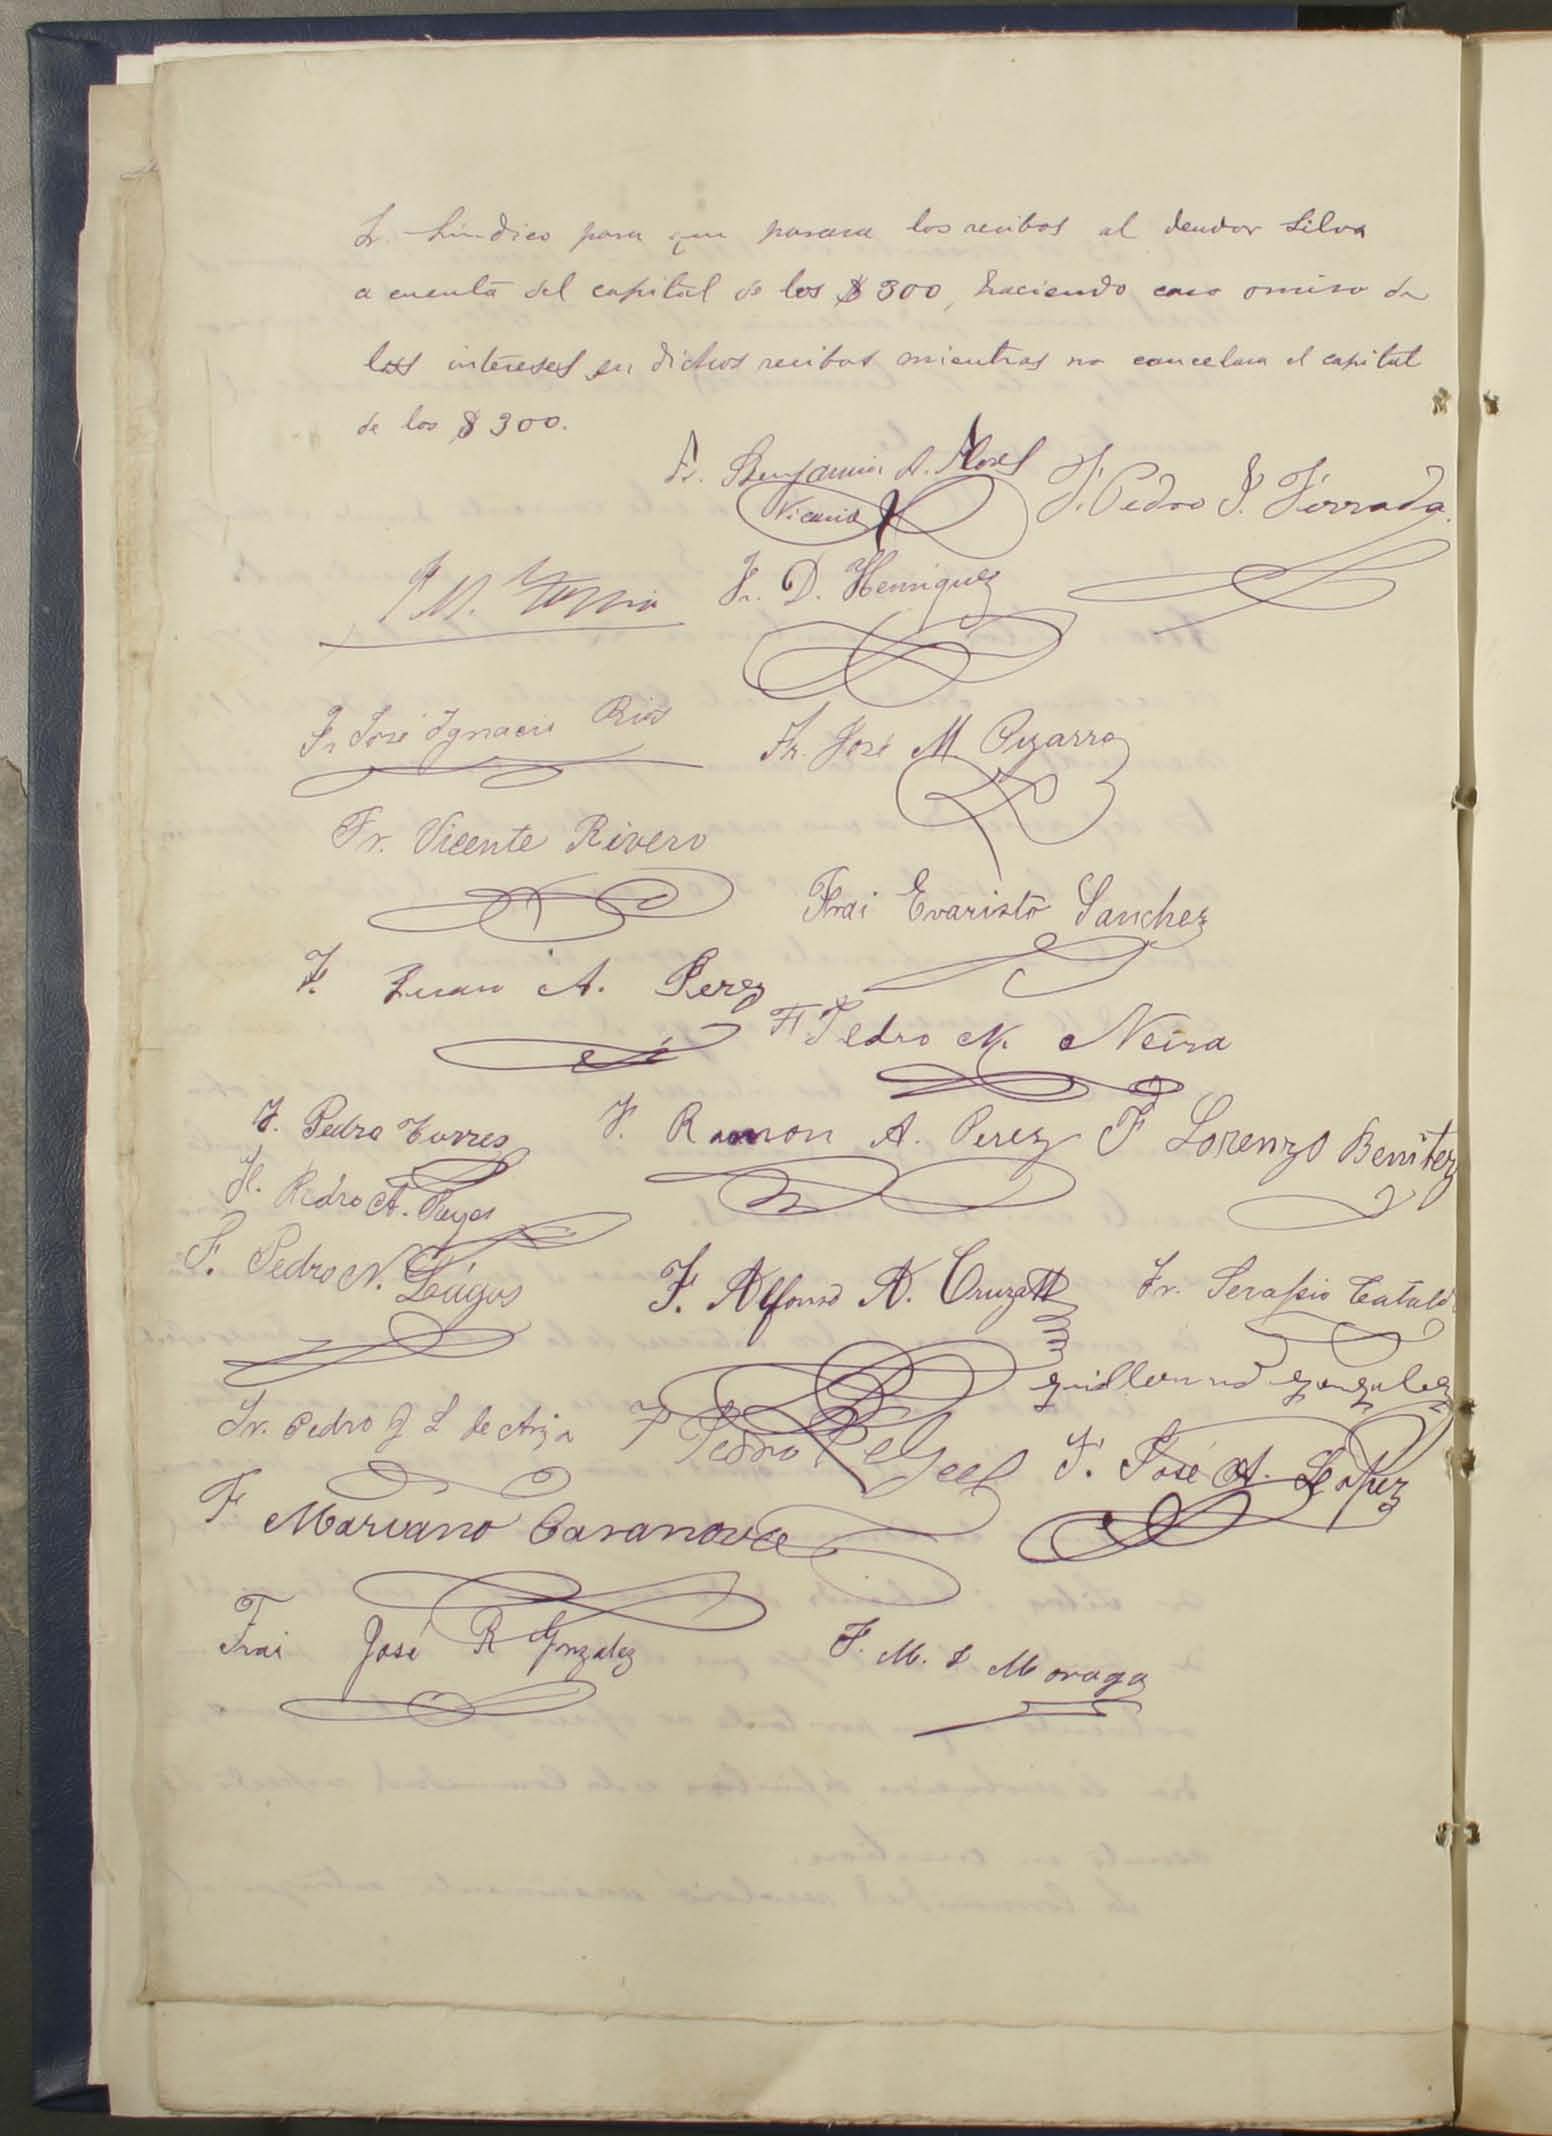 Sr. Síndico para que pasara los recibos al deudor Silva
a cuenta del capital de los $ 300, haciendo caso omiso de
los intereses en dichos recibos mientras no cancelara el capital
de los $ 300.
Fr. Benjamin A. Flores
Vicario
F. Pedro J. Ferrada
Fr. D. Henriquez
Fr José Ignacio Rios
Fr. José M Pizarro
Fr. Vicente Rivero
Frai Evaristo Sanchez
F. Juan A. Perez
Fr Pedro N. Neira
F. Pedro Torres
F. Ramon A. Perez
F Lorenzo Benitez
F. Pedro A. Reyes
F. Pedro N. Lágos
F. Alfonso A. Cruzatt
Fr. Serapio Catalá
Guillermo Gonzalez
Fr. Pedro J L de Ariza
F Pedro
F. José A. Lopez
F Mariano Casanova
Frai José R Gonzalez
F. M. L Moraga